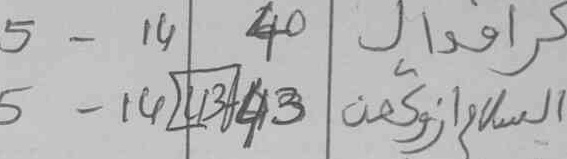 5 - 14 40 كرافوال
5 - 14 43 43 السلام